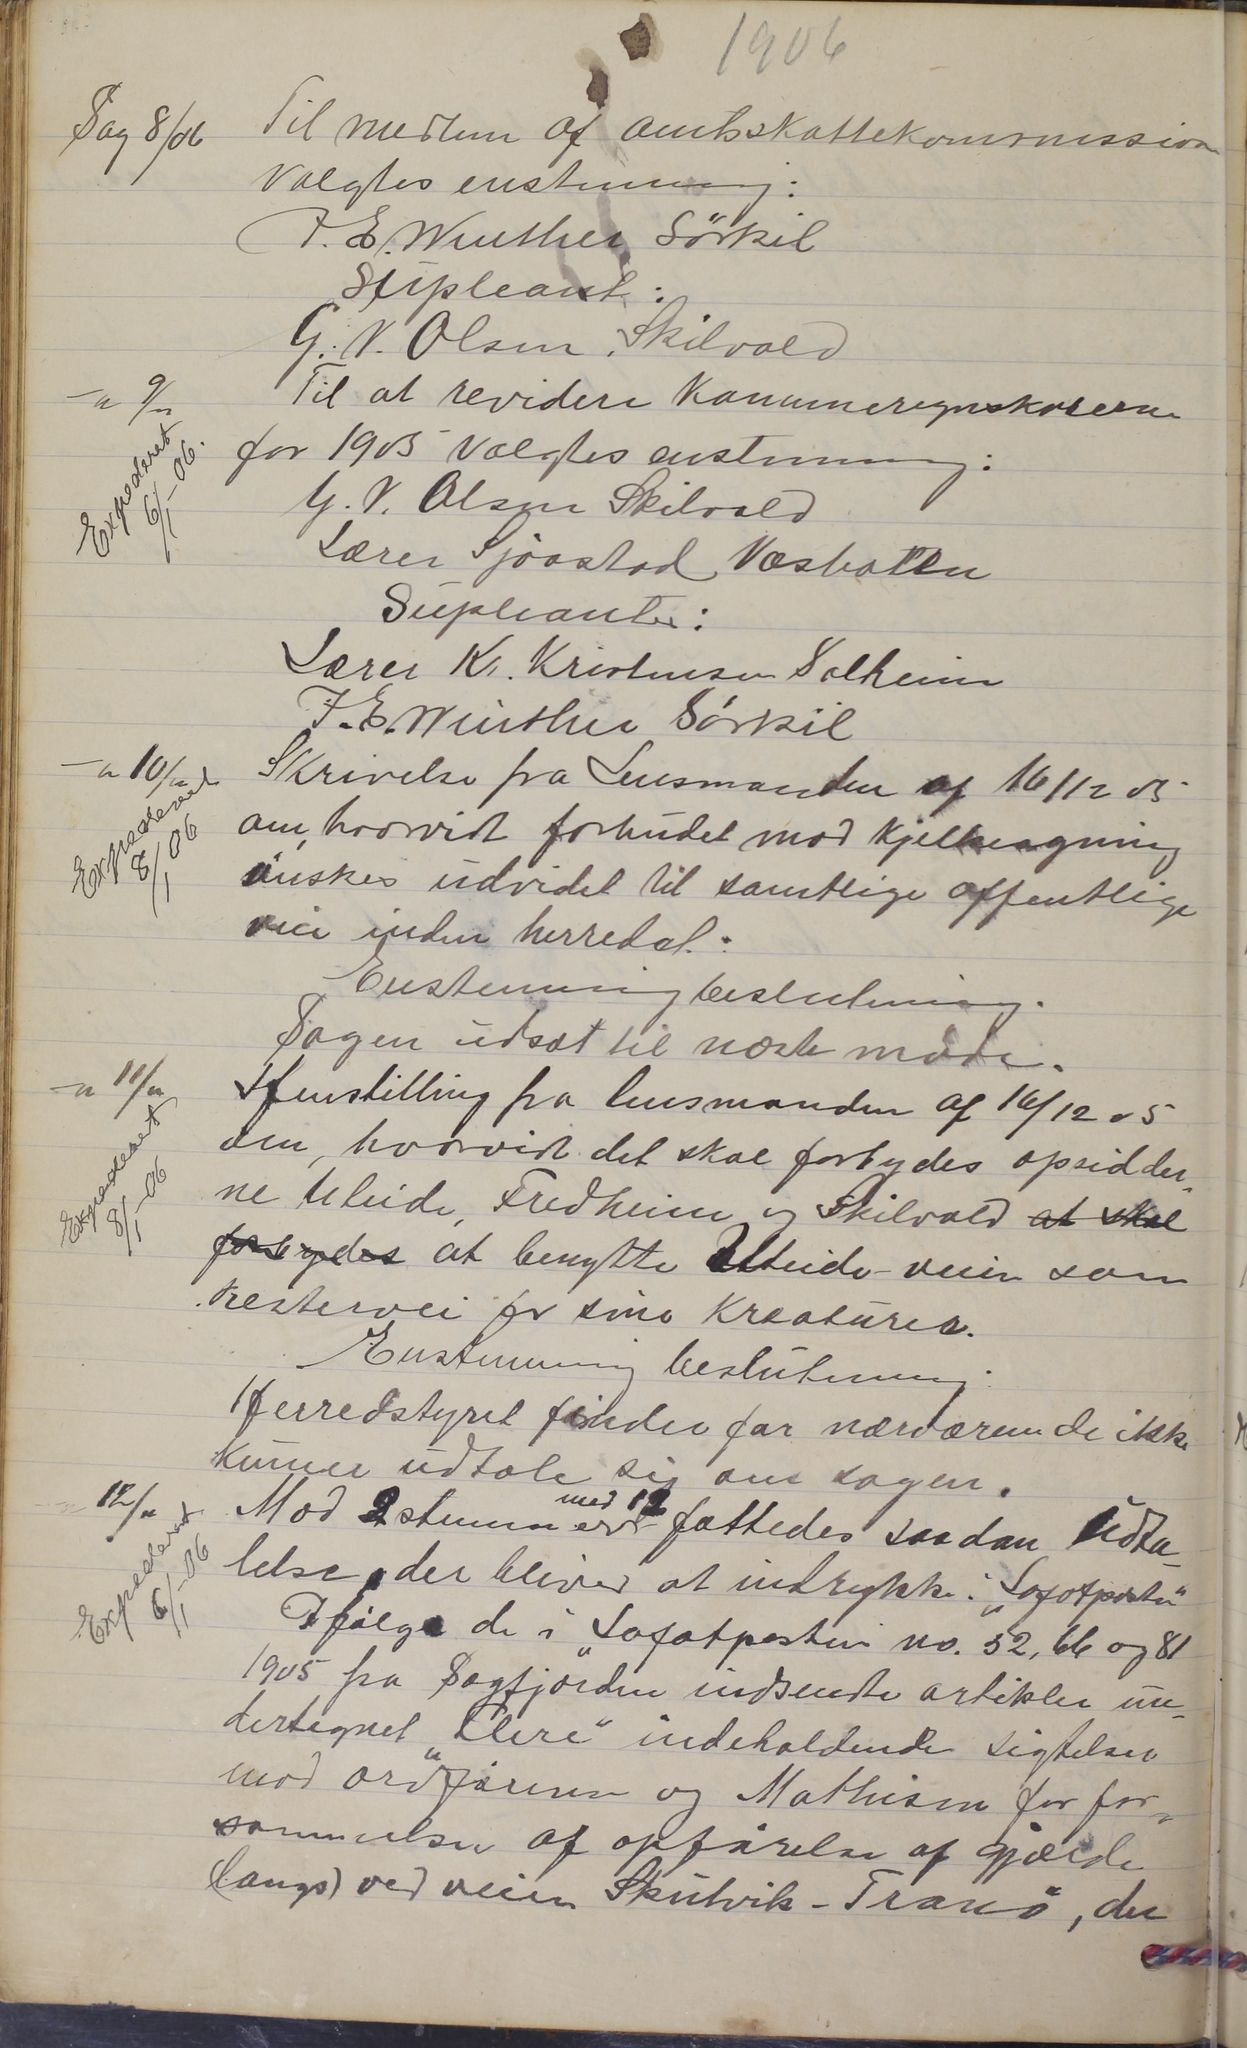 1906
Sag 8/06 Til medlem af amtsskattekommission
valgtes enstemmig:
J. E. Winther Sörkil
Supleant:
G. V. Olsen, Skilvold
-"- 9/"
Til at revidere Kommuneregnskaberne
Expederet 6/1-06.
for 1905 valgtes enstemmig:
G. V. Olsen Skilvold
Lærer Sjöostad Næsbotten
Supleanter:
Lærer Kr. Kristensen Solheim
J. E. Winther Sörkil
-"- 10/"
Skrivelse fra Lensmanden af 16/12 05
Expederet 8/1 06
om, hvorvidt forbudet mod kjelkeagning
önskes udvidet til samtlige offentlige
veie inden herredet:
Enstemmig beslutning.
Sagen udsat til næste möde.
-"- 11/"
Henstilling fra lensmanden af 16/12 05
Expederet 8/1-06
om, hvorvidt det skal forbydes opsidder-
ne Uleide, Fredheim og Skilvold at skal
forbydes at benytte Uleide-veien som
hestervei for sine Kreaturer.
Enstemmig beslutning:
Herredstyret finder for nærværende ikke
kunne udtale sig om sagen.
-"- 12/"
Mod 2 stemmer med 12 fattedes saadan Udta-
Expederet 6/1-06
lelse, der bliver at indrykke i "Lofotposten"
Ifölge de i "Lofotposten no. 52, 66 og 81
1905 fra Sagfjorden indsendte artikler un-
dertegnet "Flere" indeholdende sigtelser
mod ordföreren og Mathisen for for-
sömmelser af opförelse af gjærde
(langs) ved veien Skutvik - Tranö, der